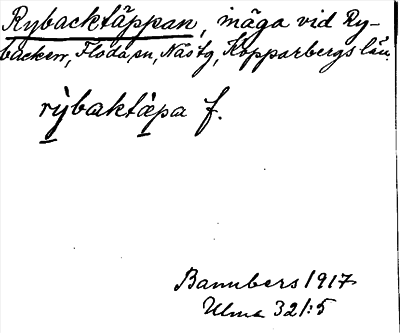 Rybacktäppan, inäga vid Ry-
backen, Floda sn, Nåstg, Kopparbergs län.
rỳbaktæ̀pa f.
Bannbers 1917
Ulma 321:5